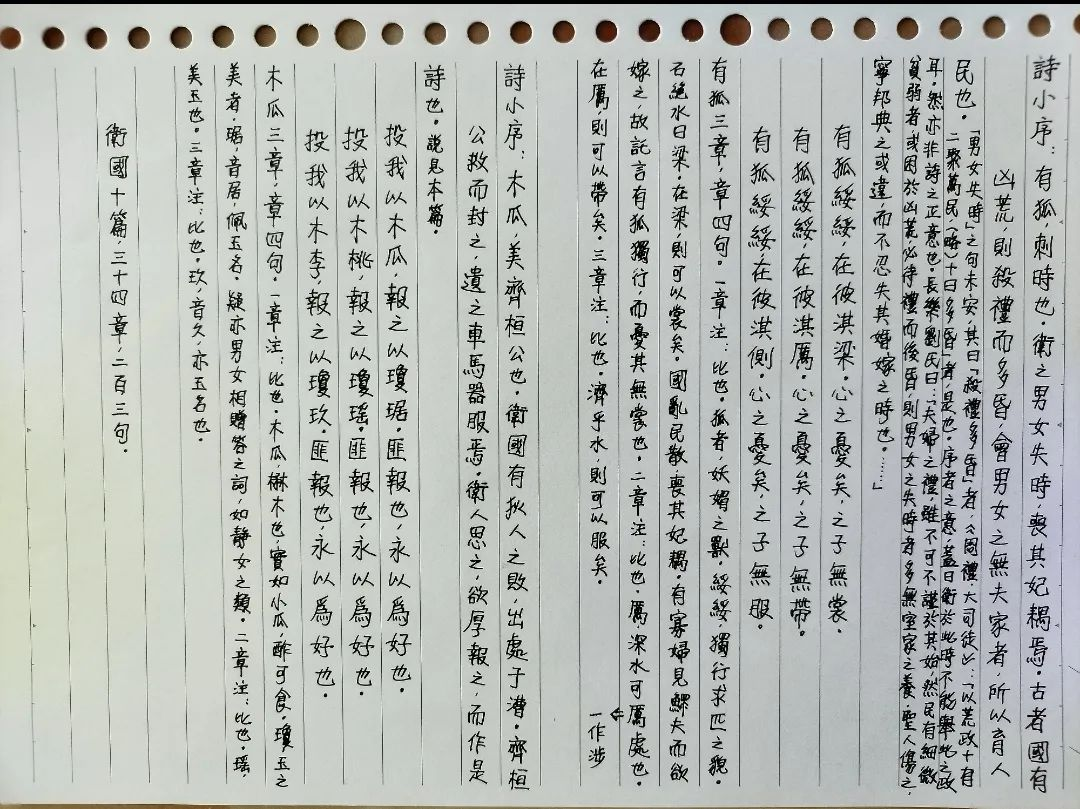 詩小序：有狐，刺時也。衛之男女失時，喪其妃耦焉。古者國有
凶荒，則殺禮而多昏，會男女之無夫家者，所以育人
民也。「男女失時」之句未安，其曰「殺禮多昏」者，《周禮·大司徒》：「以荒政十有
二聚萬民（略）十曰多昏」者，是也。序者之意，蓋曰衛於此時不能舉此之政
耳。然亦非詩之正意也。長樂劉氏曰：「夫婦之禮，雖不可不謹於其始，然民有細微
貧弱者，或困於凶荒，必待禮而後昏，則男女之失時者多，無室家之養。聖人傷之，
寧邦典之或違，而不忍失其婚嫁之時也。……」
有狐綏綏，在彼淇梁。心之憂矣，之子無裳。
有狐綏綏，在彼淇厲。心之憂矣，之子無帶。
有狐綏綏，在彼淇側。心之憂矣，之子無服。
有狐三章，章四句。一章注：比也。狐者，妖媚之獸。綏綏，獨行求匹之貌。
石絕水曰梁。在梁，則可以裳矣。國亂民散，喪其妃耦。有寡婦見鰥夫而欲
嫁之，故託言有狐獨行，而憂其無裳也。二章注：比也。厲，深水可厲處也。
一作涉
在厲，則可以帶矣。三章注：比也。濟乎水，則可以服矣。
詩小序：木瓜，美齊桓公也。衛國有狄人之敗，出處于漕。齊桓
公救而封之，遺之車馬器服焉。衛人思之，欲厚報之，而作是
詩也。說見本篇。
投我以木瓜，報之以瓊琚。匪報也，永以爲好也。
投我以木桃，報之以瓊瑤。匪報也，永以爲好也。
投我以木李，報之以瓊玖。匪報也，永以爲好也。
木瓜三章，章四句。一章注：比也。木瓜，楙木也，實如小瓜，酢可食。瓊，玉之
美者。琚，音居，佩玉名。疑亦男女相贈答之詞，如靜女之類。二章注：比也。瑤，
美玉也。三章注：比也。玖，音久，亦玉名也。
衛國十篇，三十四章，二百三句。